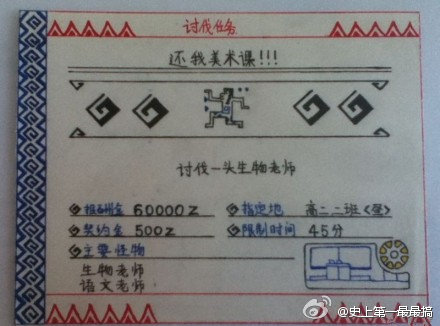 讨伐任务
还我美术课!!!
讨伐一头生物老师
报酬金 60000Z 指定地 高二二班<昼>
契约金 500Z 限制时间 45分
主要怪物
生物老师
语文老师
@史上第一最最搞